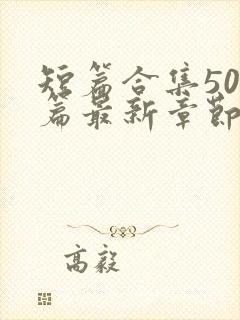 短篇合集50
篇最新章节
高毅